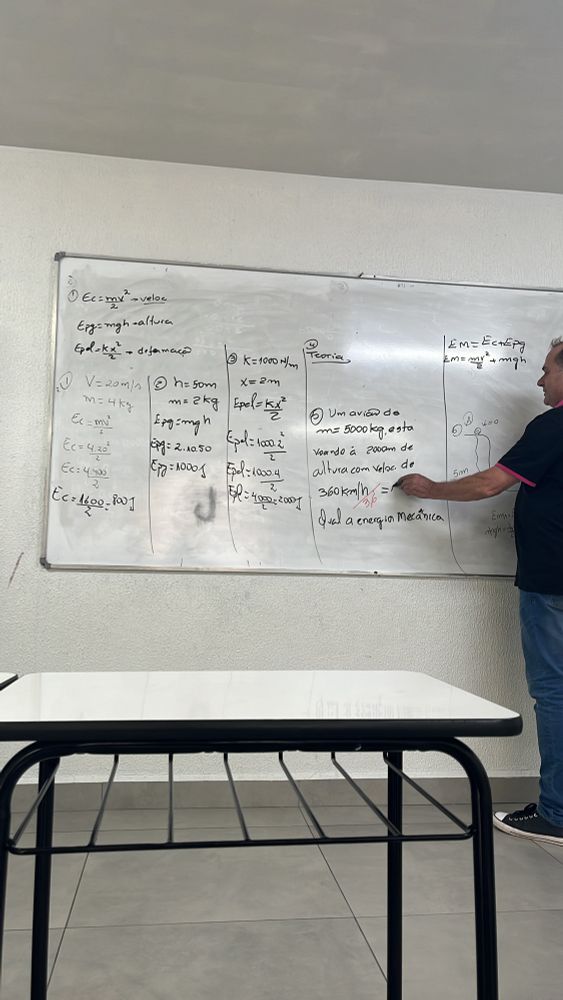 ① Ec = mv²/2 → veloc
Epg = mgh → altura
Epel = Kx²/2 → deformaçã
① V = 20m/s
m = 4kg
Ec = mv²/2
Ec = 4.20²/2
Ec = 4.400/2
Ec = 1600/2 = 800J
② h = 50m
m = 2kg
Epg = mgh
Epg = 2.10.50
Epg = 1000J
③ K = 1000 N/m
x = 2m
Epel = Kx²/2
Epel = 1000.2²/2
Epel = 1000.4/2
Epl = 4000/2 = 2000J
④
Teoria
⑤ Um avião de
m = 5000kg, esta
voando à 2000m de
altura com veloc de
360km/h /3,6 =
Qual a energia Mecânica
EM = Ec + Epg
EM = mv²/2 + mgh
⑥
v=0
5m